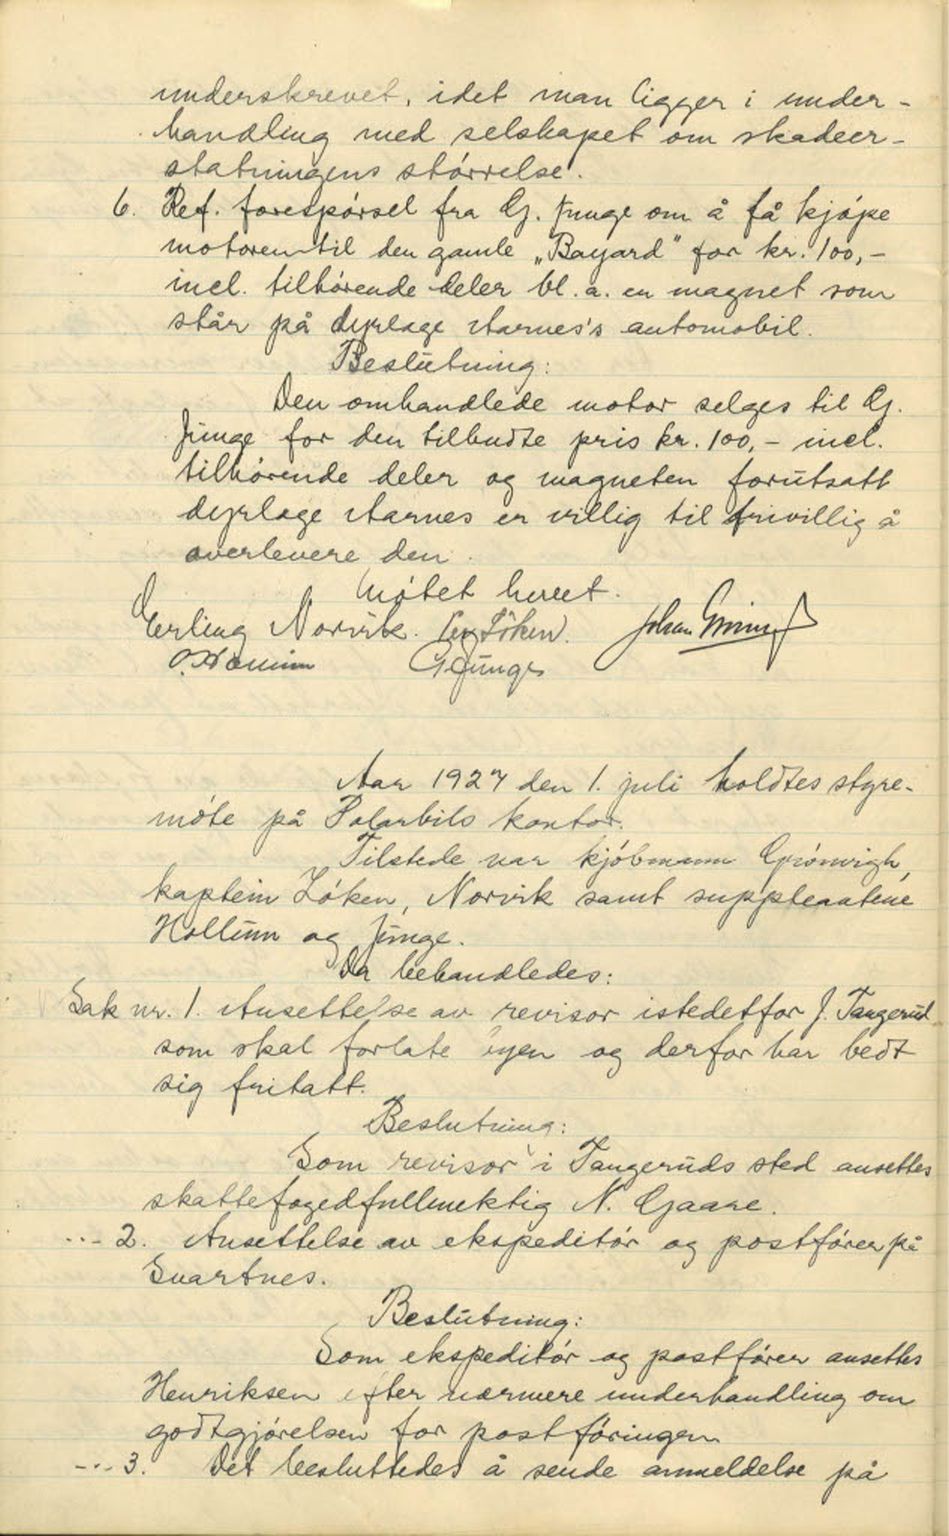 underskrevet, idet man ligger i under-
handling med selskapet om skadeer-
statningens størrelse.
6. Ref. forespørsel fra G. Junge om å få kjøpe
motoren til den gamle „Bayard" for kr. 100,-
incl. tilhørende deler bl. a. en magnet som
står på dyrlæge Aarnes's automobil.
Beslutning:
Den omhandlede motor selges til G.
Junge for den tilbudte pris kr. 100,- incl.
tilhørende deler og magneten forutsatt
dyrlæge Aarnes er villig til frivillig å
overlevere den.
Møtet hevet.
Erling Norvik. Løken. Johan
GJunge
Aar 1927 den 1. juli holdtes styre-
møte på Polarbils kontor.
Tilstede var kjøbmann Grønvigh,
kaptein Løken, Norvik samt suppleantene
Hollum og Junge.
Da behandledes:
Sak nr. 1. Ansettelse av revisor istedetfor J. Tangerud
som skal forlate byen og derfor har bedt
sig fritatt.
Beslutning:
Som revisor i Tangeruds sted ansettes
skattefogedfullmektig N. Gaare.
-"- 2. Ansettelse av ekspeditør og postfører på
Svartnes.
Beslutning:
Som ekspeditør og postfører ansettes
Henriksen efter nærmere underhandling om
godtgjørelsen for postføringen
-"- 3. Det besluttedes å sende anmeldelse på